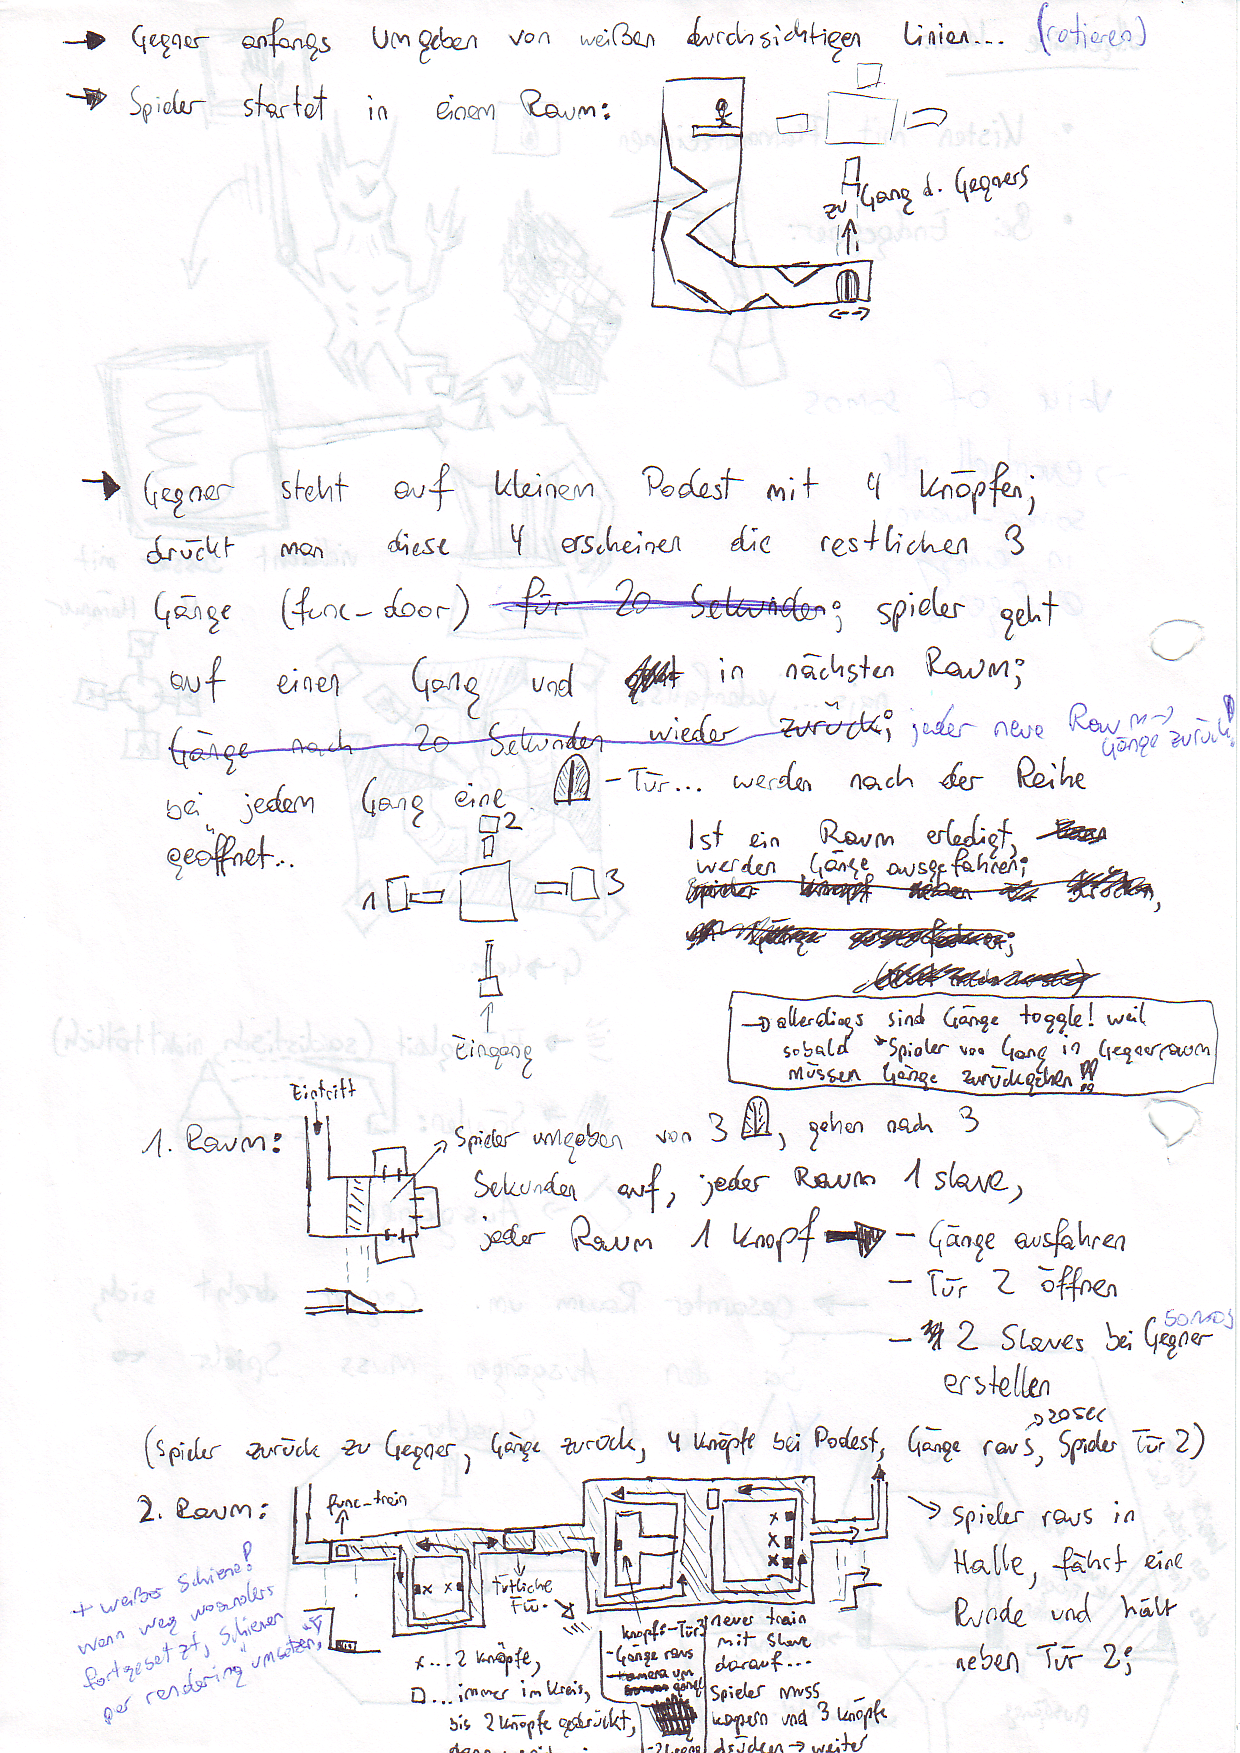 → Gegner anfangs umgeben von weißen durchsichtigen Linien... (rotieren)
→ Spieler startet in einem Raum:
zu Gang d. Gegners
→ Gegner steht auf kleinem Podest mit 4 Knöpfen;
drückt man diese 4 erscheinen die restlichen 3
Gänge (func-door) für 20 Sekunden; spieler geht
auf einen Gang und in nächsten Raum;
Gänge nach 20 Sekunden wieder zurück; jeder neue Raum →
Gänge zurück!
bei jedem Gang eine - Tür... werden nach der Reihe
geöffnet...
2
1
3
Eingang
Ist ein Raum erledigt,
werden Gänge ausgefahren;
→ allerdings sind Gänge toggle! weil
sobald Spieler von Gang in Gegnerraum
müssen Gänge zurückgehen!!
Eintritt
1. Raum:
Spieler umgeben von 3 , gehen nach 3
Sekunden auf, jeder Raum 1 slave,
jeder Raum 1 Knopf → - Gänge ausfahren
- Tür 2 öffnen
- 2 Slaves bei Gegner
somos
erstellen
→ 20 sec
(Spieler zurück zu Gegner, Gänge zurück, 4 Knöpfe bei Podest, Gänge raus, Spieler Tür 2)
2. Raum:
func-train
Tütliche
→ Spieler raus in
Halle, fährt eine
Runde und hält
neben Tür 2;
+ weißer Schiene!
wenn weg woanders
fortgesetzt, Schienen
per rendering umsetzen
x...2 Knöpfe,
□...immer im Kreis,
bis 2 Knöpfe gedrückt,
Knopf: -Tür 3
-Gänge raus
neuer train
mit slave
darauf...
Spieler muss
kapern und 3 Knöpfe
drücken → weiter